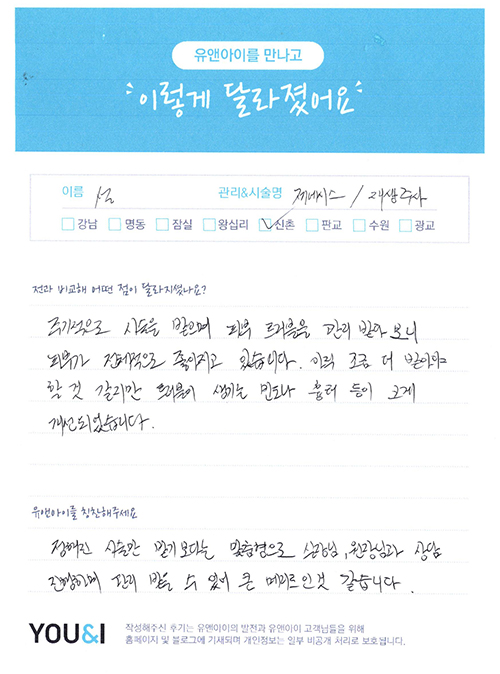 유앤아이를 만나고
이렇게 달라졌어요
이름 설 관리&시술명 제네시스 / 재생주사
강남 명동 잠실 왕십리 신촌 판교 수원 광교
전과 비교해 어떤 점이 달라지셨나요?
주기적으로 시술을 받으며 피부 트러블을 관리 받아 보니
피부가 전체적으로 좋아지고 있습니다. 아직 조금 더 받아야
할 것 같지만 트러블이 생기는 빈도나 흉터 등이 크게
개선되었습니다.
유앤아이를 칭찬해주세요
정해진 시술만 받기 보다는 맞춤형으로 실장님, 원장님과 상담
진행하며 관리 받을 수 있어 큰 메리트인것 같습니다.
YOU&I 작성해주신 후기는 유앤아이의 발전과 유앤아이 고객님들을 위해
홈페이지 및 블로그에 기재되며 개인정보는 일부 비공개 처리로 보호됩니다.